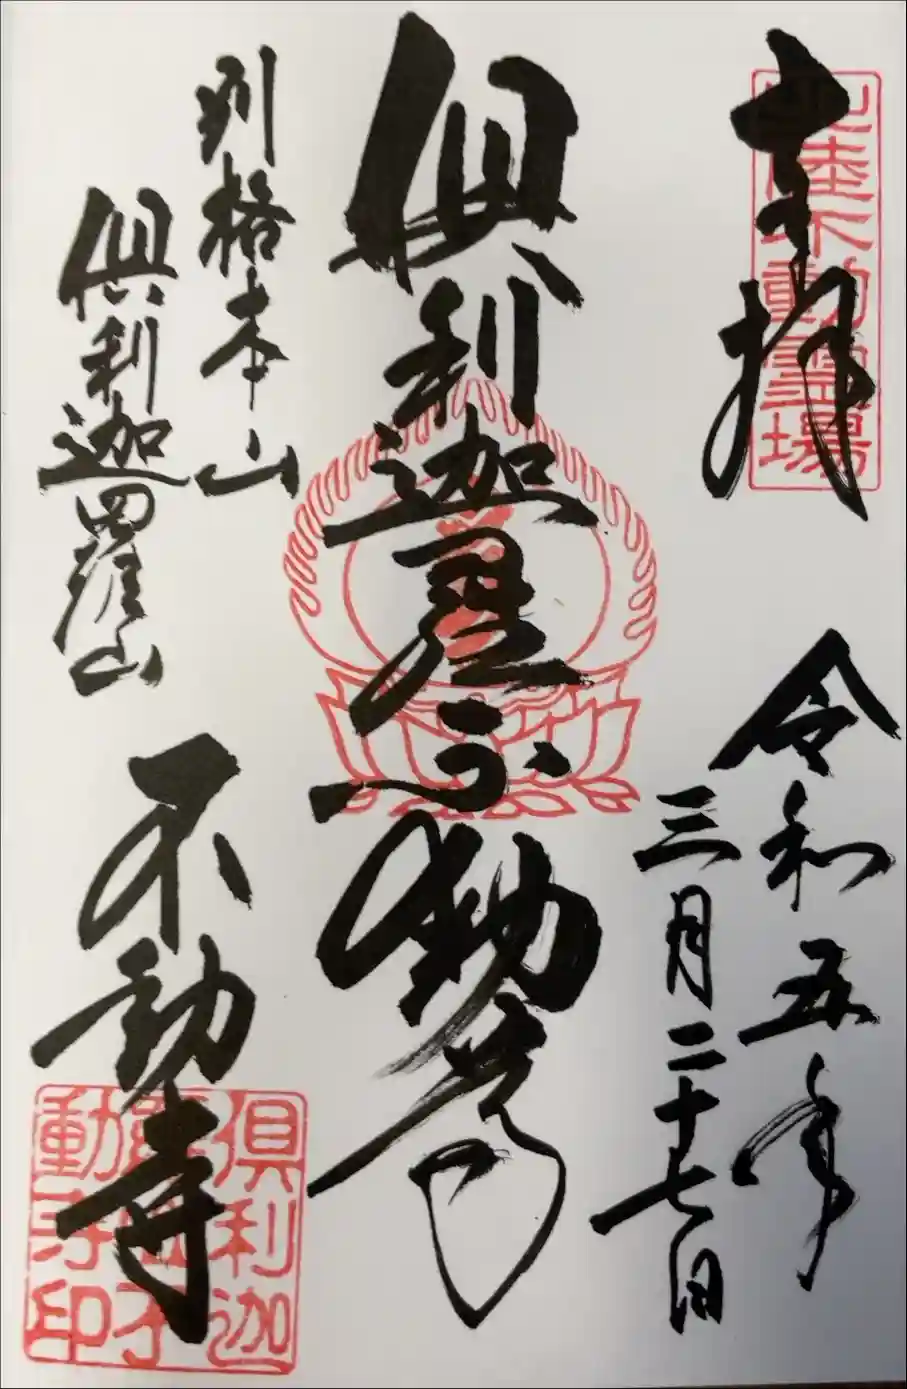 奉拝
北陸不動霊場
令和五年
三月二十七日
倶利迦羅不動尊
別格本山
倶利迦羅山
不動寺
倶利迦
動寺印